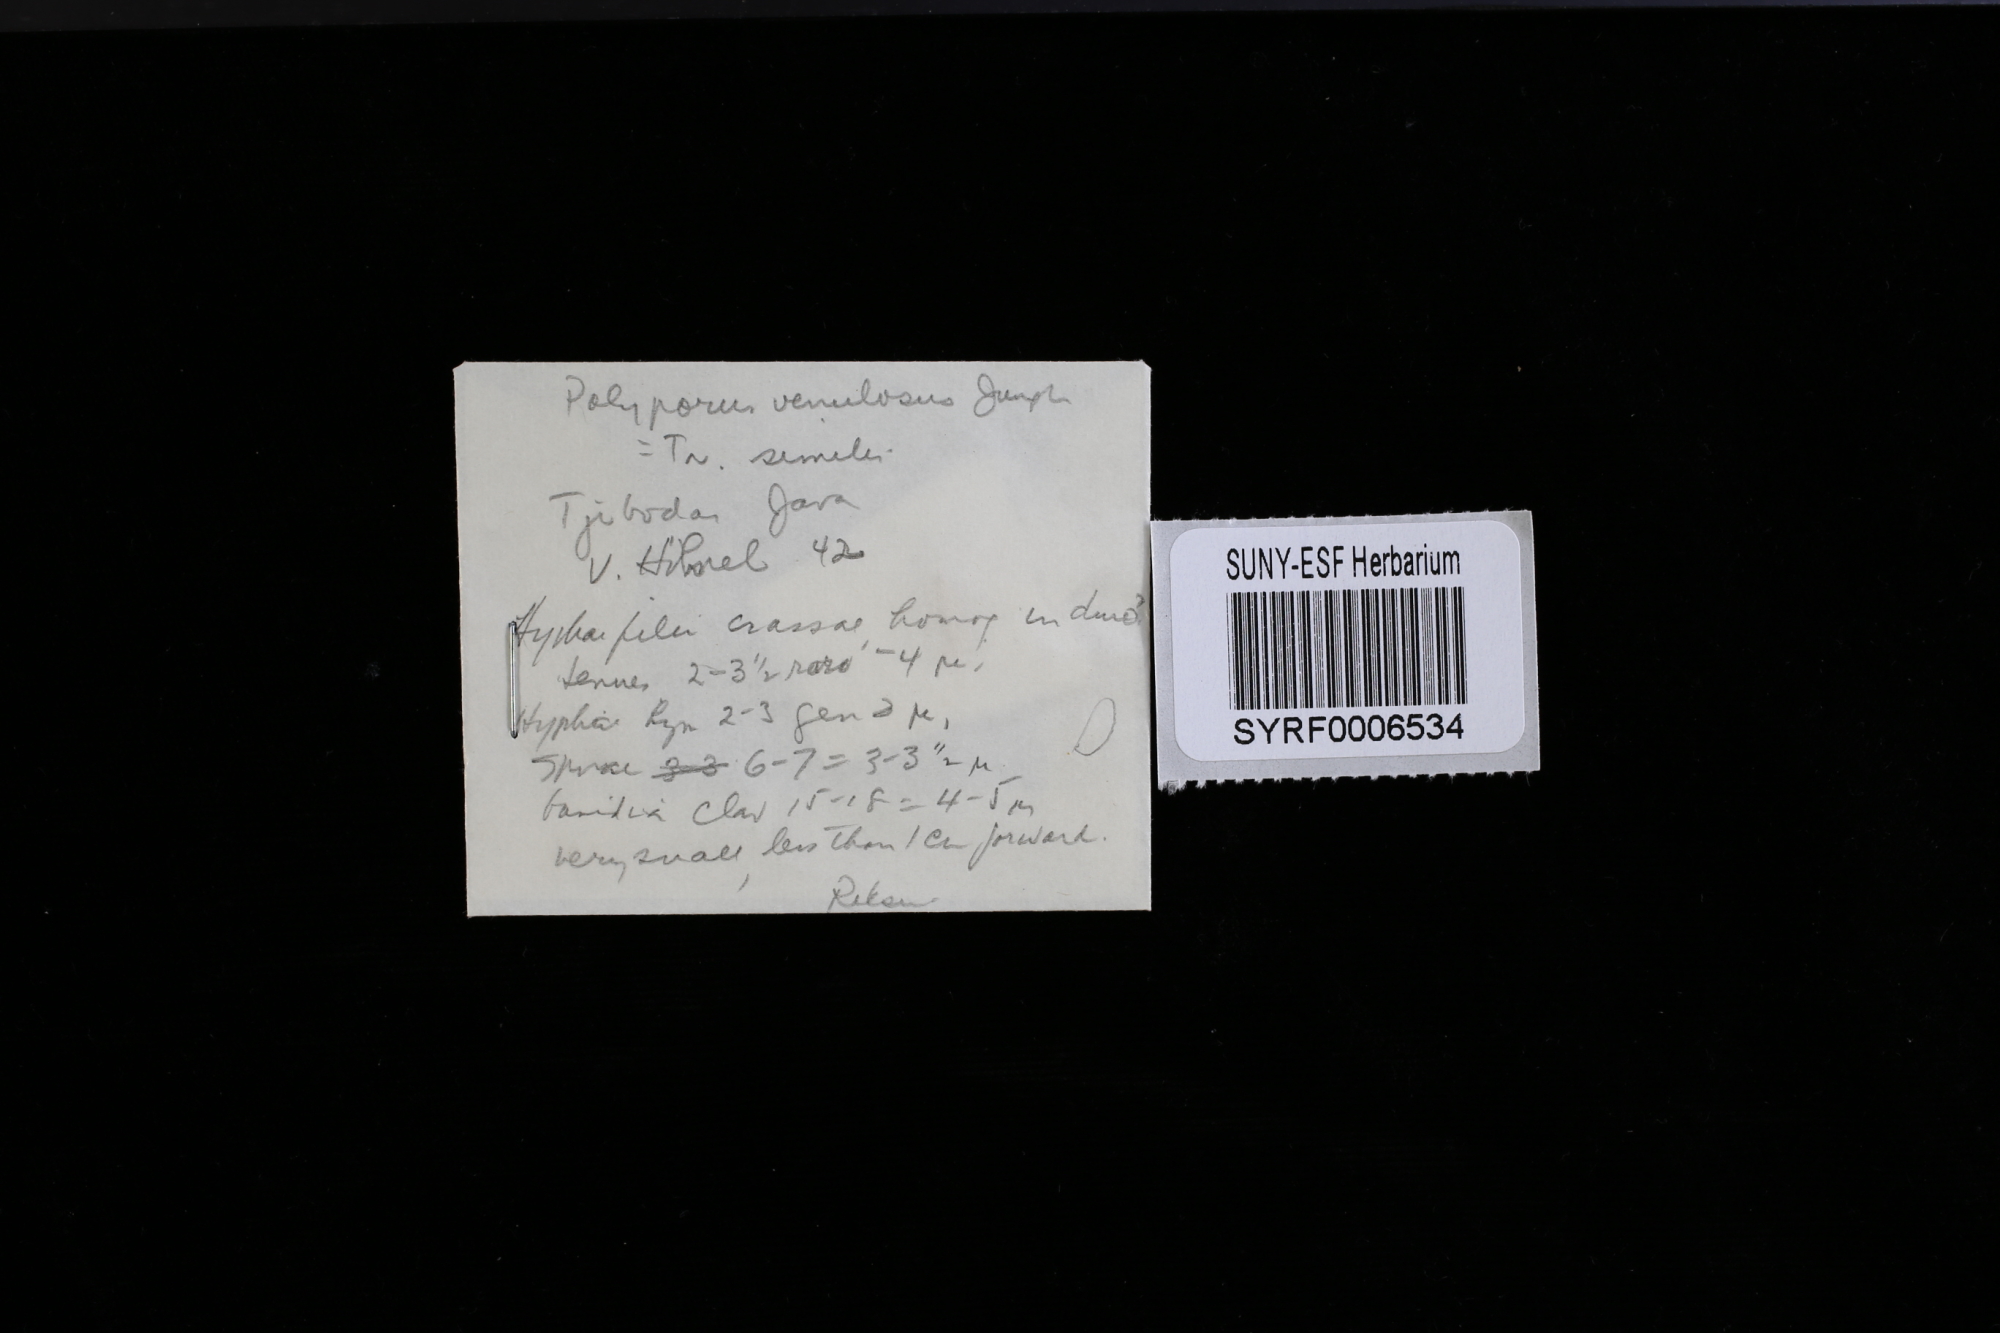 Polyporus venulosus Jungh
= Tr.
Tjibodas Java
v. Höhnel 42
Hyphae pilei crassae, homog in
tenues 2-3½ raro -4 µ,
Hyphae hym 2-3 gen 3 µ,
Sporae 3-3 6-7 = 3-3½ µ
basidia clav 15-18 = 4-5 µ
very small, less than 1 cm forward.
SUNY-ESF Herbarium
SYRF0006534